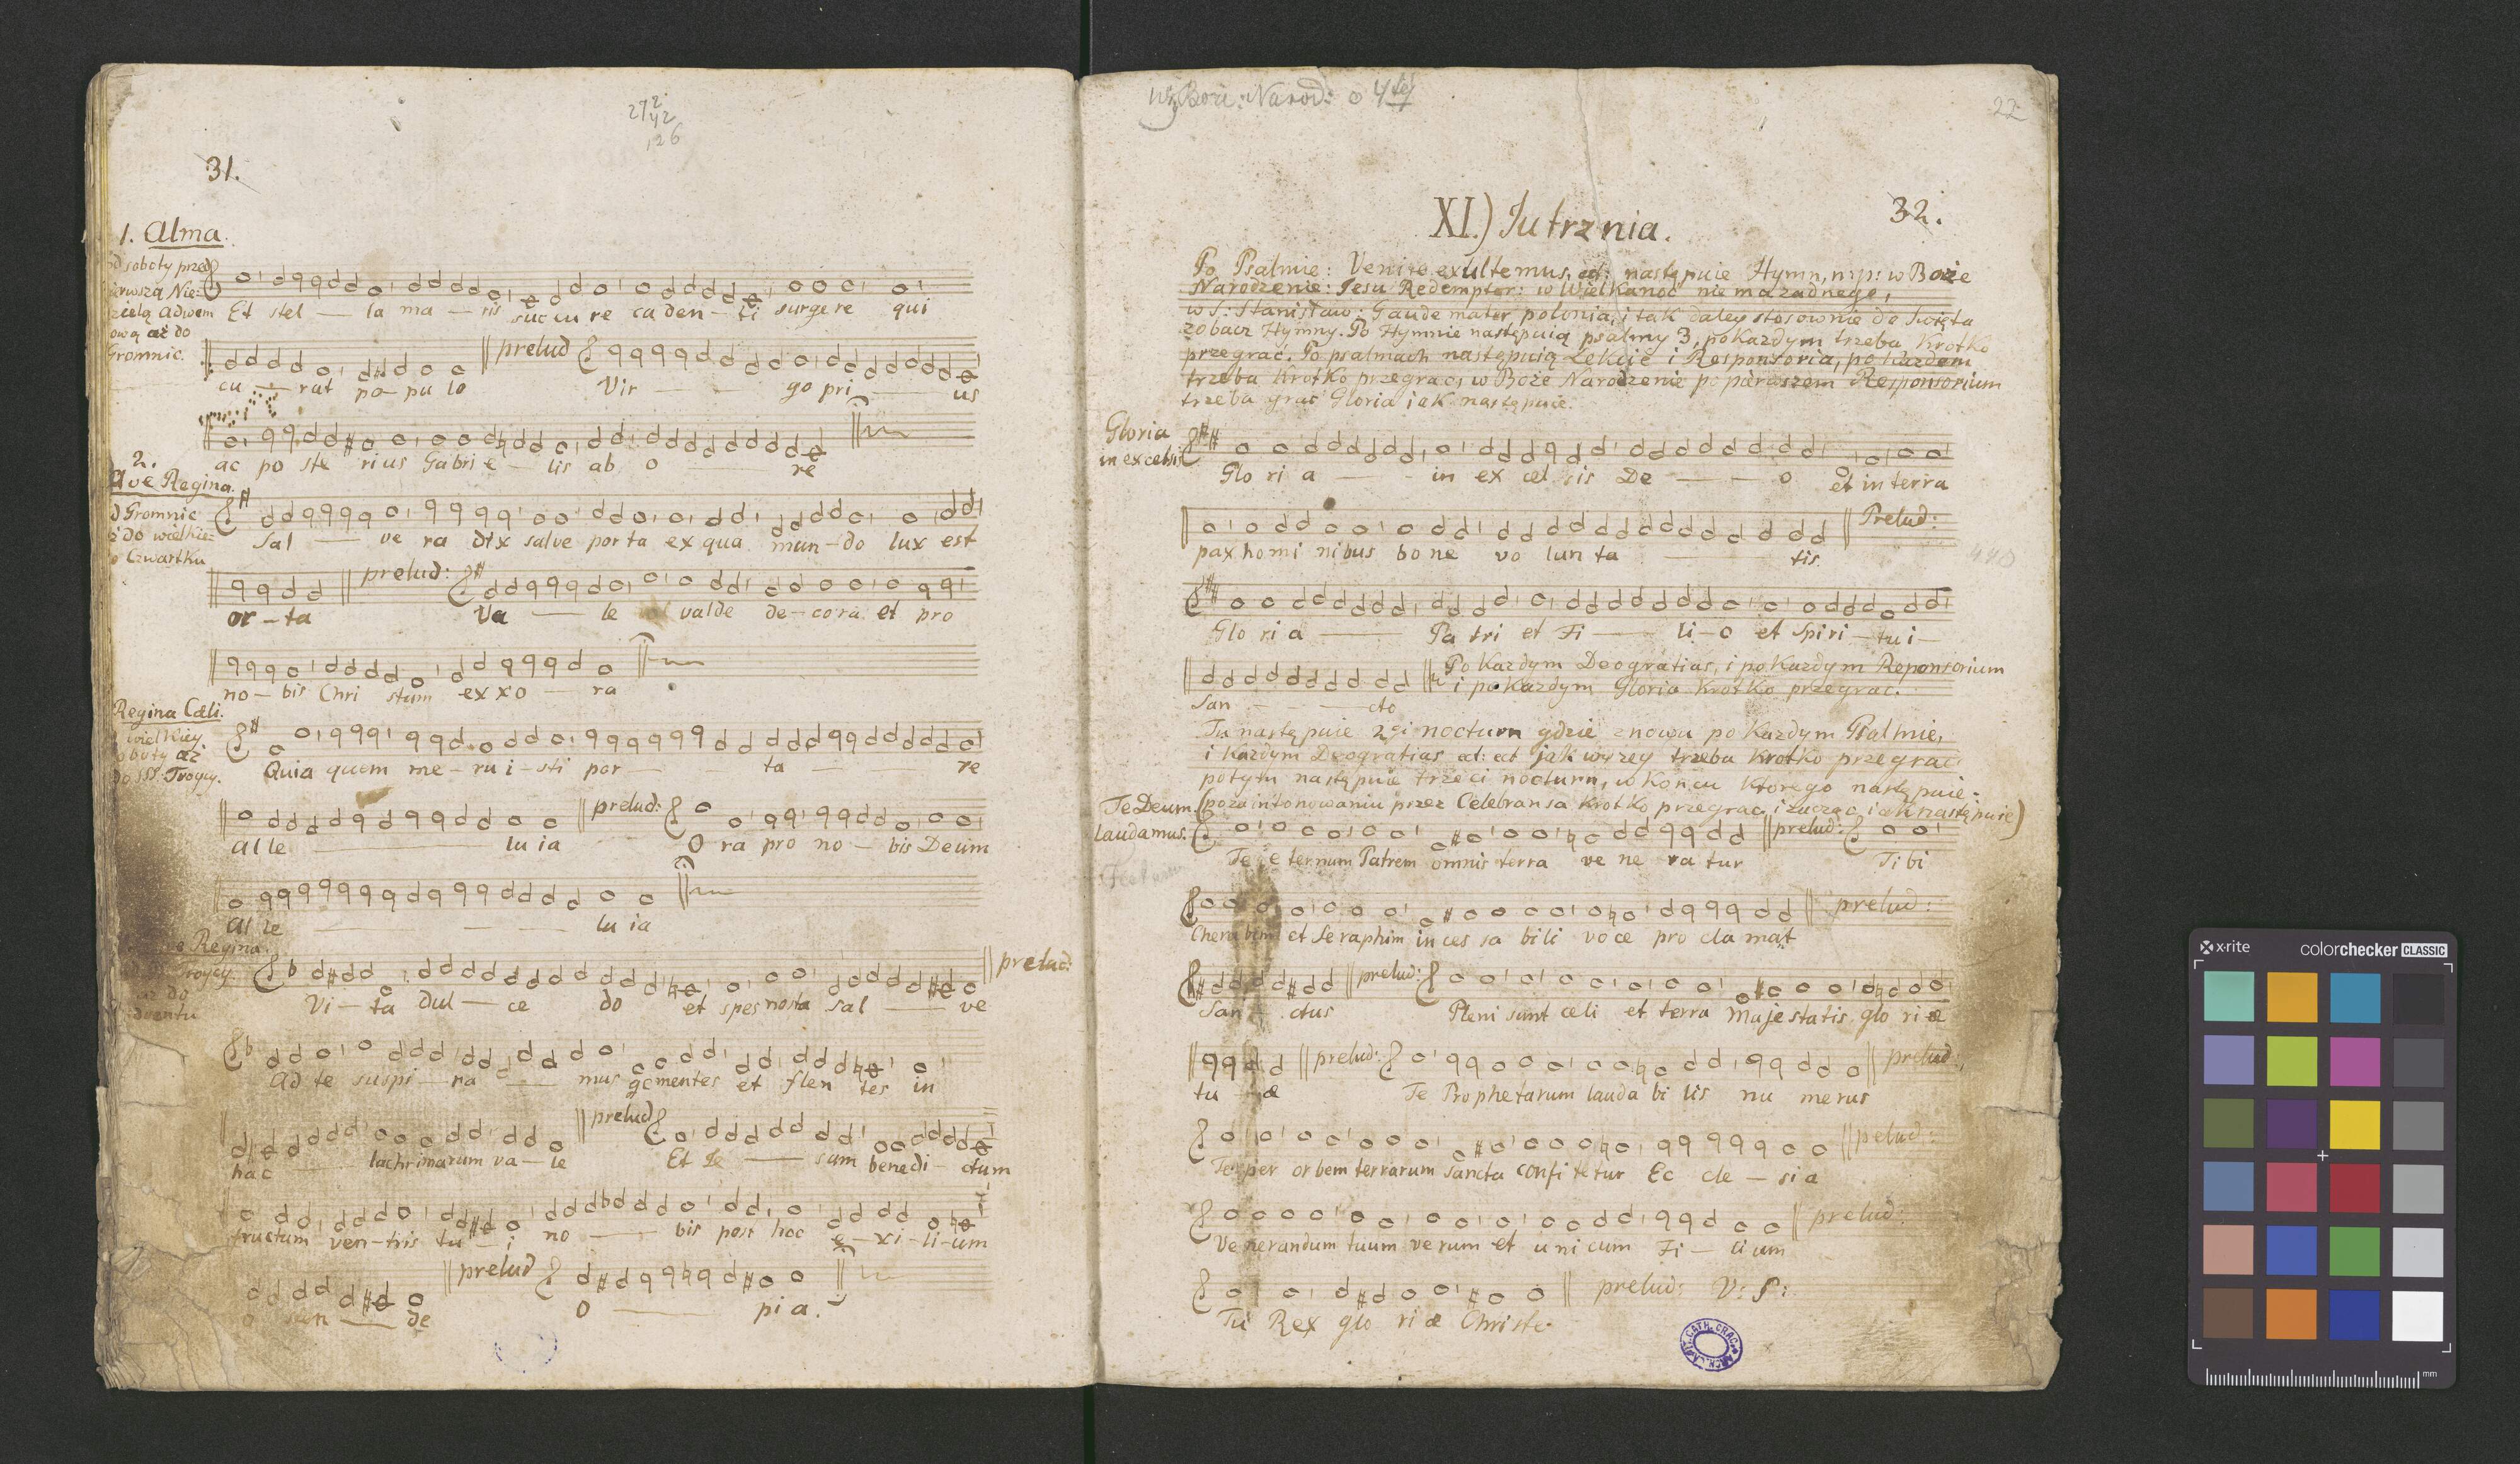 31.
1. Alma.
soboty przed
Nie:
Adwen
ową aż do
Gromnic.
Et stel — la ma — ris succu re caden — ti surgere qui
prelud
cu — rat po — pu lo Vir — go pri — us
ac po ste rius Gabri e — lis ab o — re
2.
Ave Regina.
d Gromnic
ż do wielkie:
o Czwartku
Sal — ve ra dix salve porta ex qua mun — do lux est
prelud:
or — ta Va — le valde de — cora et pro
no — bis Chri stum exxo — ra
Regina Cæli.
wielkiey
oboty aż
do SSS: Troycy.
Quia quem me — ru i — sti por — ta — re
prelud:
al le — lu ia O ra pro no — bis Deum
al le — lu ia
ve Regina.
Troycy.
aż do
dventu
prelud:
Vi — ta dul — ce do et spes nosta sal — ve
ad te suspi — ra — mus gementes et flen tes in
prelud
hac — lachrimarum va — le Et Je — sum benedi — ctum
fructum ven — tris tu — i no — bis post hoc e — xi — li — um
prelud
o — de O — pi a.
Boże: Narod: o 4tey
22
32.
XI.) Jutrznia.
Po Psalmie: Venite exultemus, ect: następuie Hymn, np: w Boże
Narodzenie: Jesu Redemptor: w Wielkanoc niema żadnego,
w S: Stanisław: Gaude mater polonia, i tak daley stosownie do Swięta
zobacz Hymny. Po Hymnie następuią psalmy 3, po każdym trzeba krotko
przegrać. Po psalmach następuią Lekcie i Responsoria, po każdem
trzeba krotko przegrać, w Boże Narodzenie po pierwszem Responsorium
trzeba grać Gloria iak następuie.
Gloria
in excelsis
Glo ri a — in ex cel sis De — o et in terra
Prelud:
pax homi nibus bo ne vo lun ta — tis.
440
Glo ri a — Pa tri et Fi — li — o et Spiri — tu i —
Po każdym Deogratias, i po każdym Reponsorium
i po każdym Gloria krotko przegrac.
San — cto
Tu następuie 2gi nocturn gdzie znowu po każdym Psalmie,
i każdym Deogratias ect: ect jak wyżey trzeba krotko przegrac
potytu następuie trzeci nocturn, w końcu ktorego następuie:
Te Deum (pozaintonowaniu przez Celebransa krotko przegrac, i zacząc iak następuie)
laudamus.
prelud:
Te e ternum Patrem omnis terra ve ne ra tur Ti bi
prelud:
Cheru bim et Seraphim in ces sa bili vo ce pro cla mat
prelud:
San — ctus Pleni sunt cæli et terra majestatis glo ri æ
prelud: prelud:
tu — æ Te Prophetarum lauda bi lis nu merus
pelud:
Te per orbem terrarum sancta confi te tur Ec cle — si a
prelud:
Ve nerandum tuum verum et uni cum Fi — lium
prelud: V: S:
Tu Rex glo ri æ Christe.
x·rite
colorchecker CLASSIC
mm